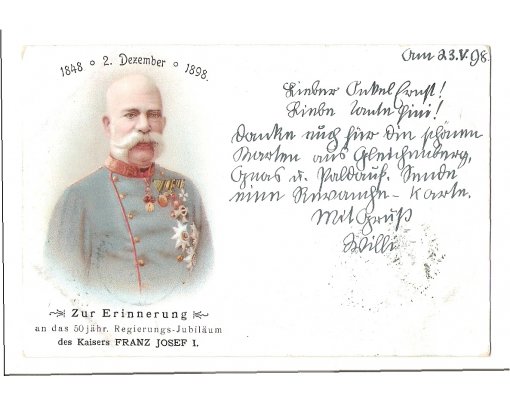 1848 ∘ 2. Dezember ∘ 1898.
Zur Erinnerung
an das 50jähr. Regierungs-Jubiläum
des Kaisers FRANZ JOSEF I.
Am 23.V.98.
Lieber Onkel Ernst!
Liebe Tante Pini!
Danke euch für die schönen
Karten aus Gleichenberg,
Gnas u. Paldauf. Sende
eine Revanche-Karte.
Mit Gruß
Willi